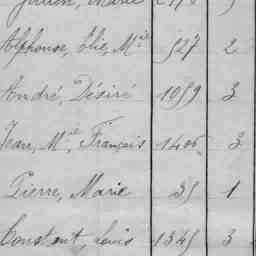 Alphonse, Élie, Mie 527 2
André, Désiré 1059 3
Jean, Mie, François 1406 3
Pierre, Marie 35 1
Constant, Louis 1345 3